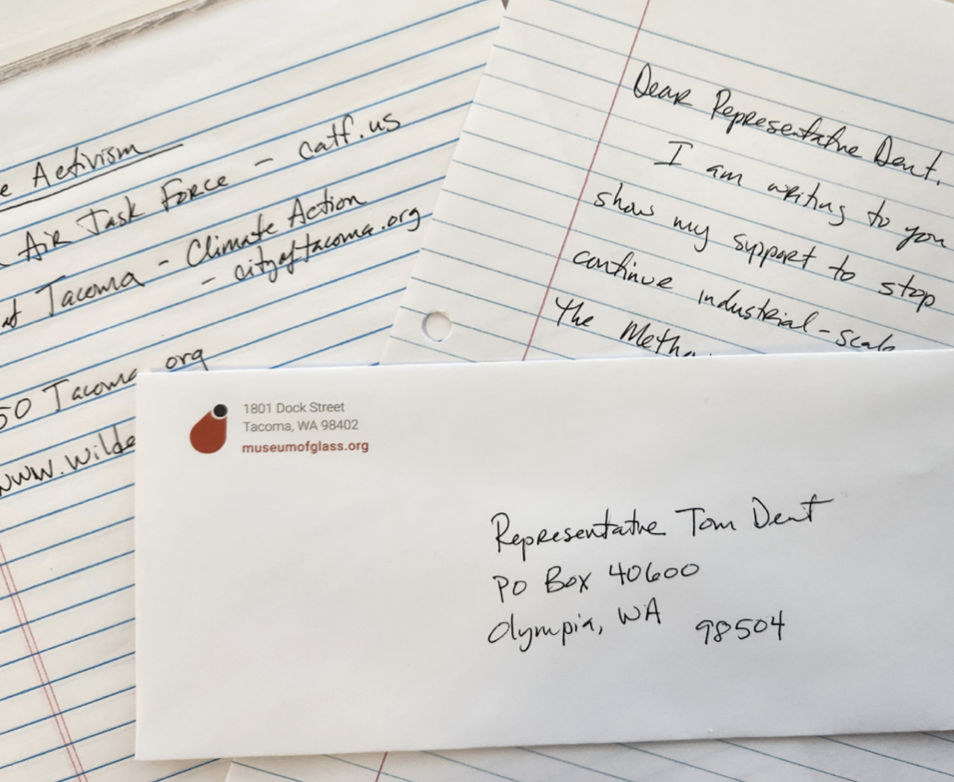 e Activism
Air Task Force - catf.us
Tacoma - Climate Action
- cityoftacoma.org
50 Tacoma.org
www.wilde
Dear Representative Dent,
I am writing to you
show my support to stop
continue industrial-scale
the Metha
1801 Dock Street
Tacoma, WA 98402
museumofglass.org
Representative Tom Dent
PO Box 40600
Olympia, WA 98504